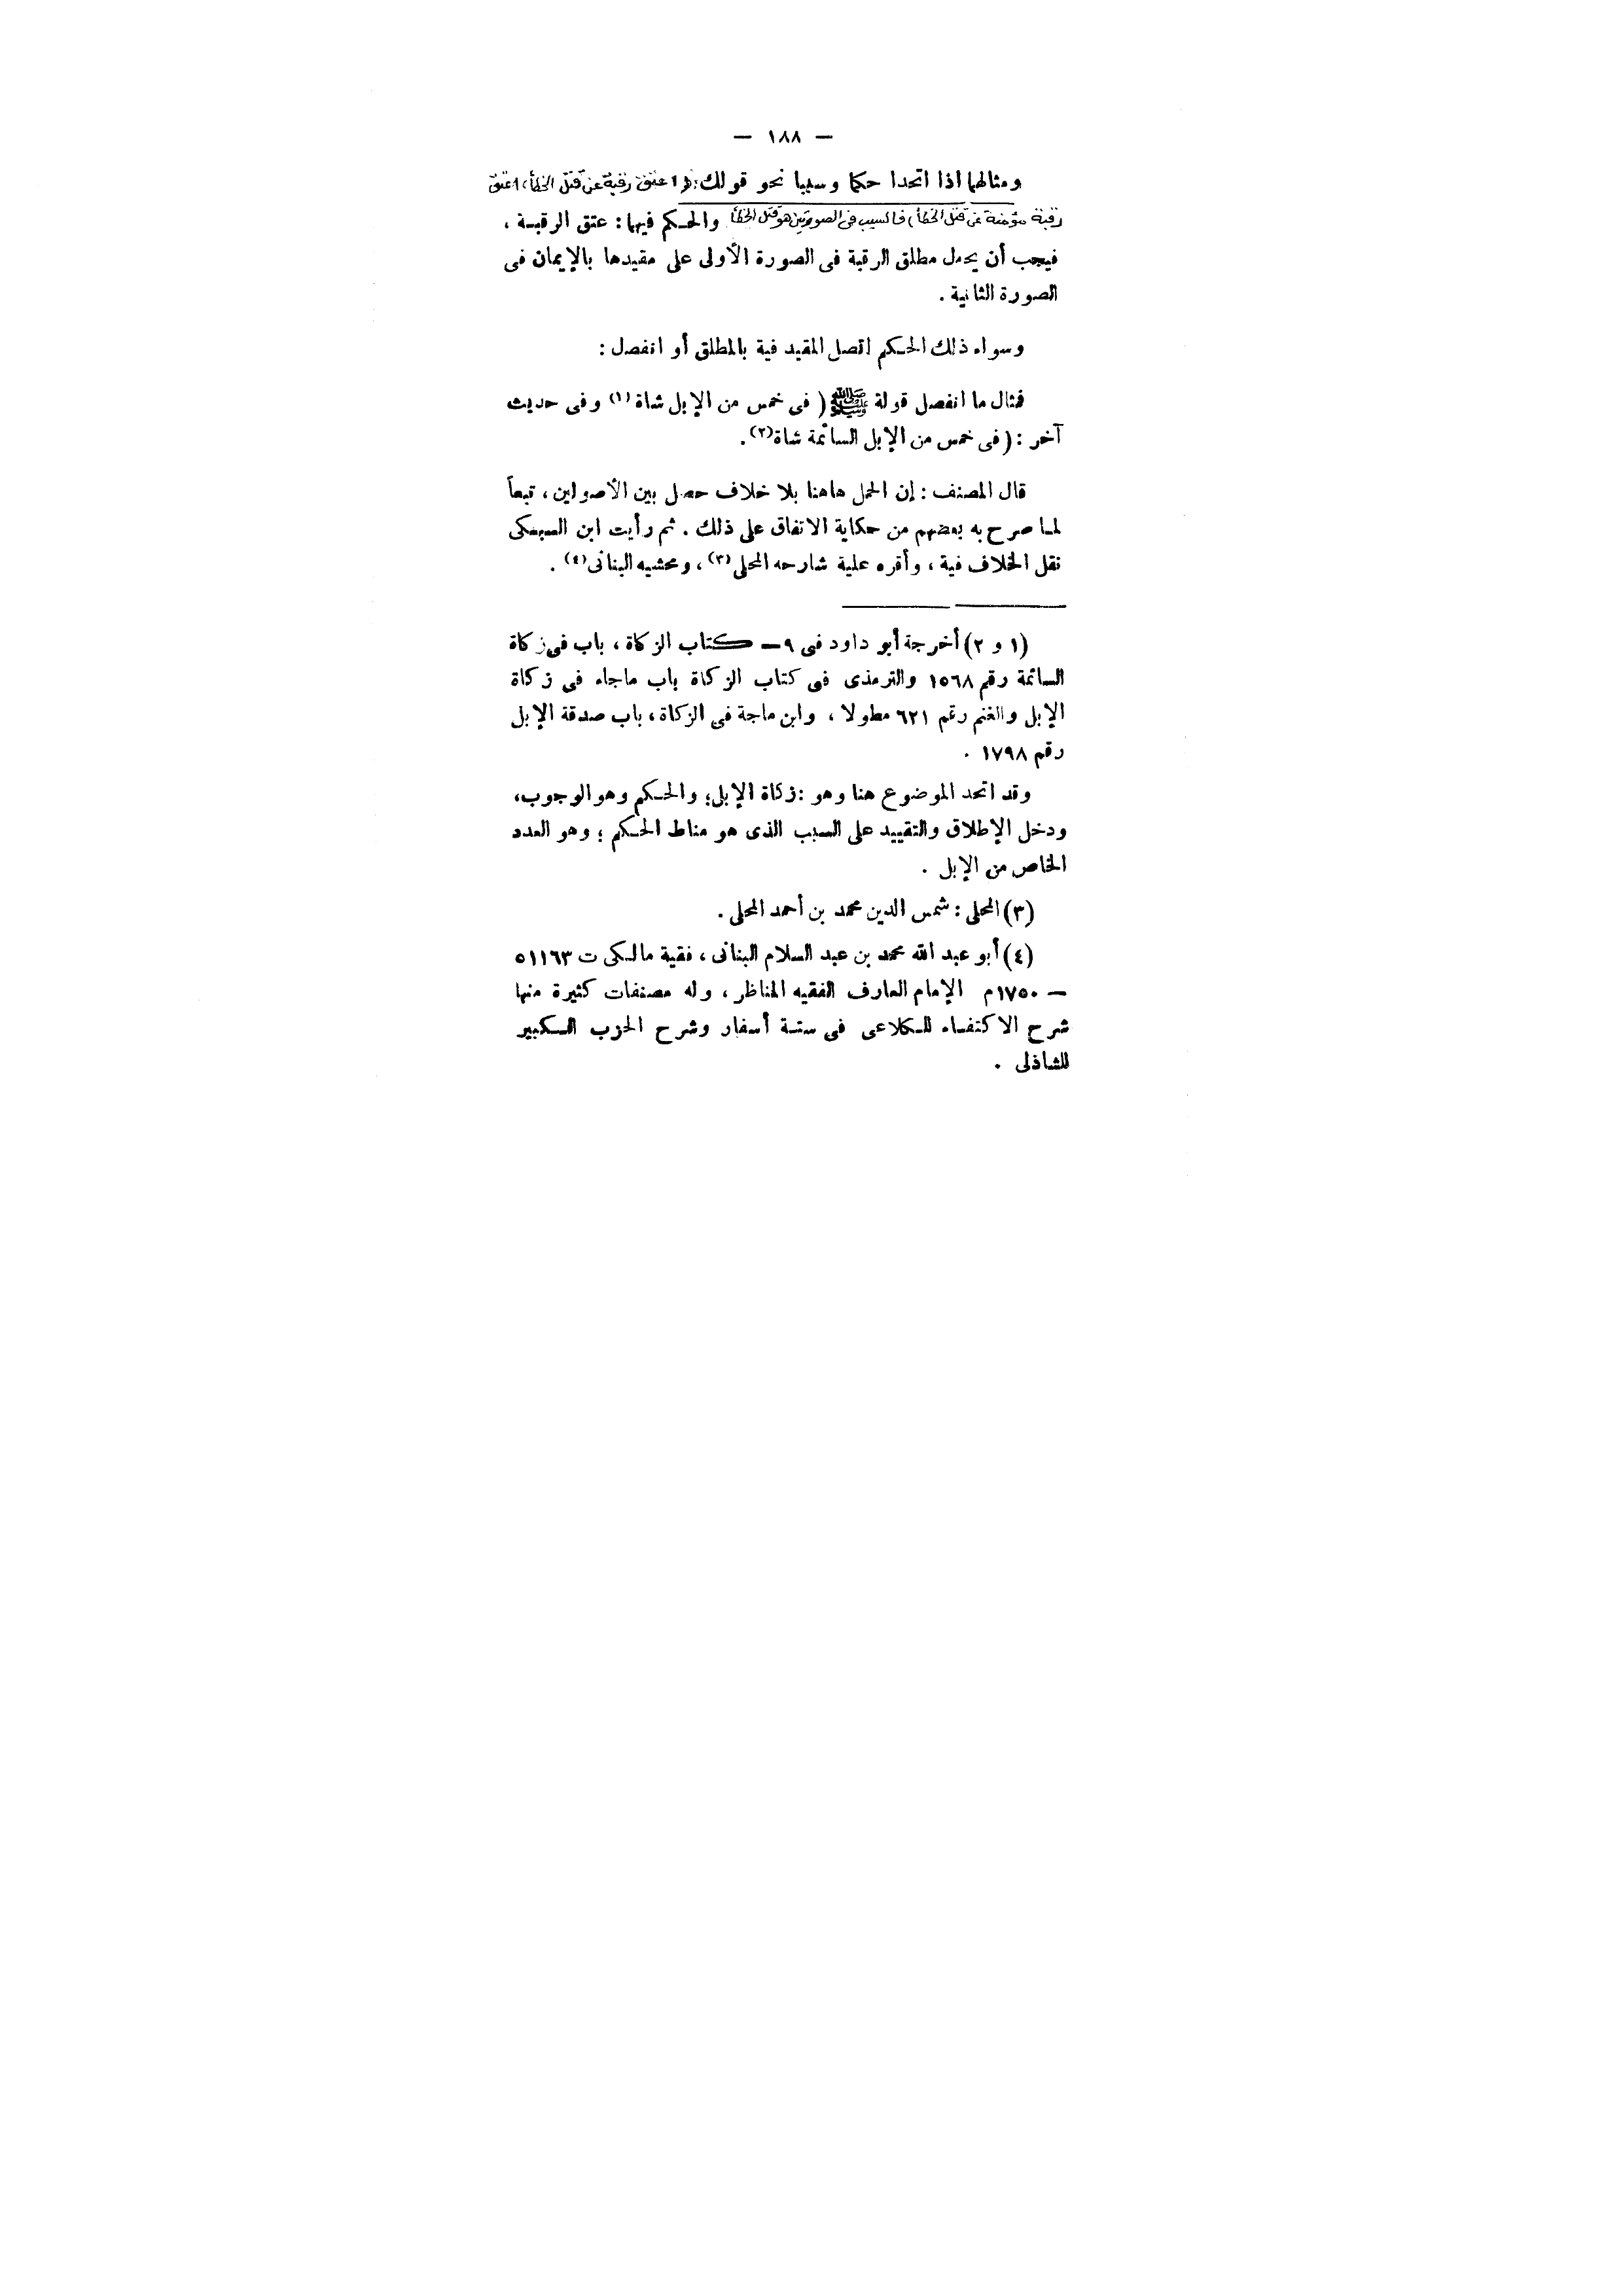 — ١٨٨ —
ومثالهما اذا اتحدا حكما وسببا نحو قولك: (اعتق رقبة عن قتل الخطأ، اعتق
رقبة مؤمنة عن قتل الخطأ) فالسبب فى الصورتين هو قتل الخطأ والحكم فيهما: عتق الرقبة ،
فيجب أن يحمل مطلق الرقبة فى الصورة الأولى على مقيدها بالإيمان فى
الصورة الثانية .
وسواء ذلك الحكم اتصل المقيد فية بالمطلق أو انفصل :
فمثال ما انفصل قولة ﷺ ( فى خمس من الإبل شاة (١) وفى حديث
آخر : ( فى خمس من الإبل السائمة شاة(٢).
قال المصنف : إن الحمل هاهنا بلا خلاف حصل بين الأصولين ، تبعاً
لما صرح به بعضهم من حكاية الاتفاق على ذلك . ثم رأيت ابن السبكى
نقل الخلاف فية ، وأقره علية شارحه المحلى (٣) ، ومحشيه البنانى (٤) .
(١ و ٢) أخرجة أبو داود فى ٩ — كتاب الزكاة ، باب فى زكاة
السائمة رقم ١٥٦٨ والترمذى فى كتاب الزكاة باب ماجاء فى زكاة
الإبل والغنم رقم ٦٢١ مطولا ، وابن ماجة فى الزكاة ، باب صدقة الإبل
رقم ١٧٩٨ .
وقد اتحد الموضوع هنا وهو : زكاة الإبل؛ والحكم وهو الوجوب،
ودخل الإطلاق والتقييد على السبب الذى هو مناط الحكم ؛ وهو العدد
الخاص من الإبل .
(٣) المحلى : شمس الدين محمد بن أحمد المحلى .
(٤) أبو عبد الله محمد بن عبد السلام البنانى ، فقية مالكى ت ١١٦٣ه
— ١٧٥٠م الإمام العارف الفقيه المناظر ، وله مصنفات كثيرة منها
شرح الاكتفاء للكلاعى فى ستة أسفار وشرح الحزب الكبير
للشاذلى .